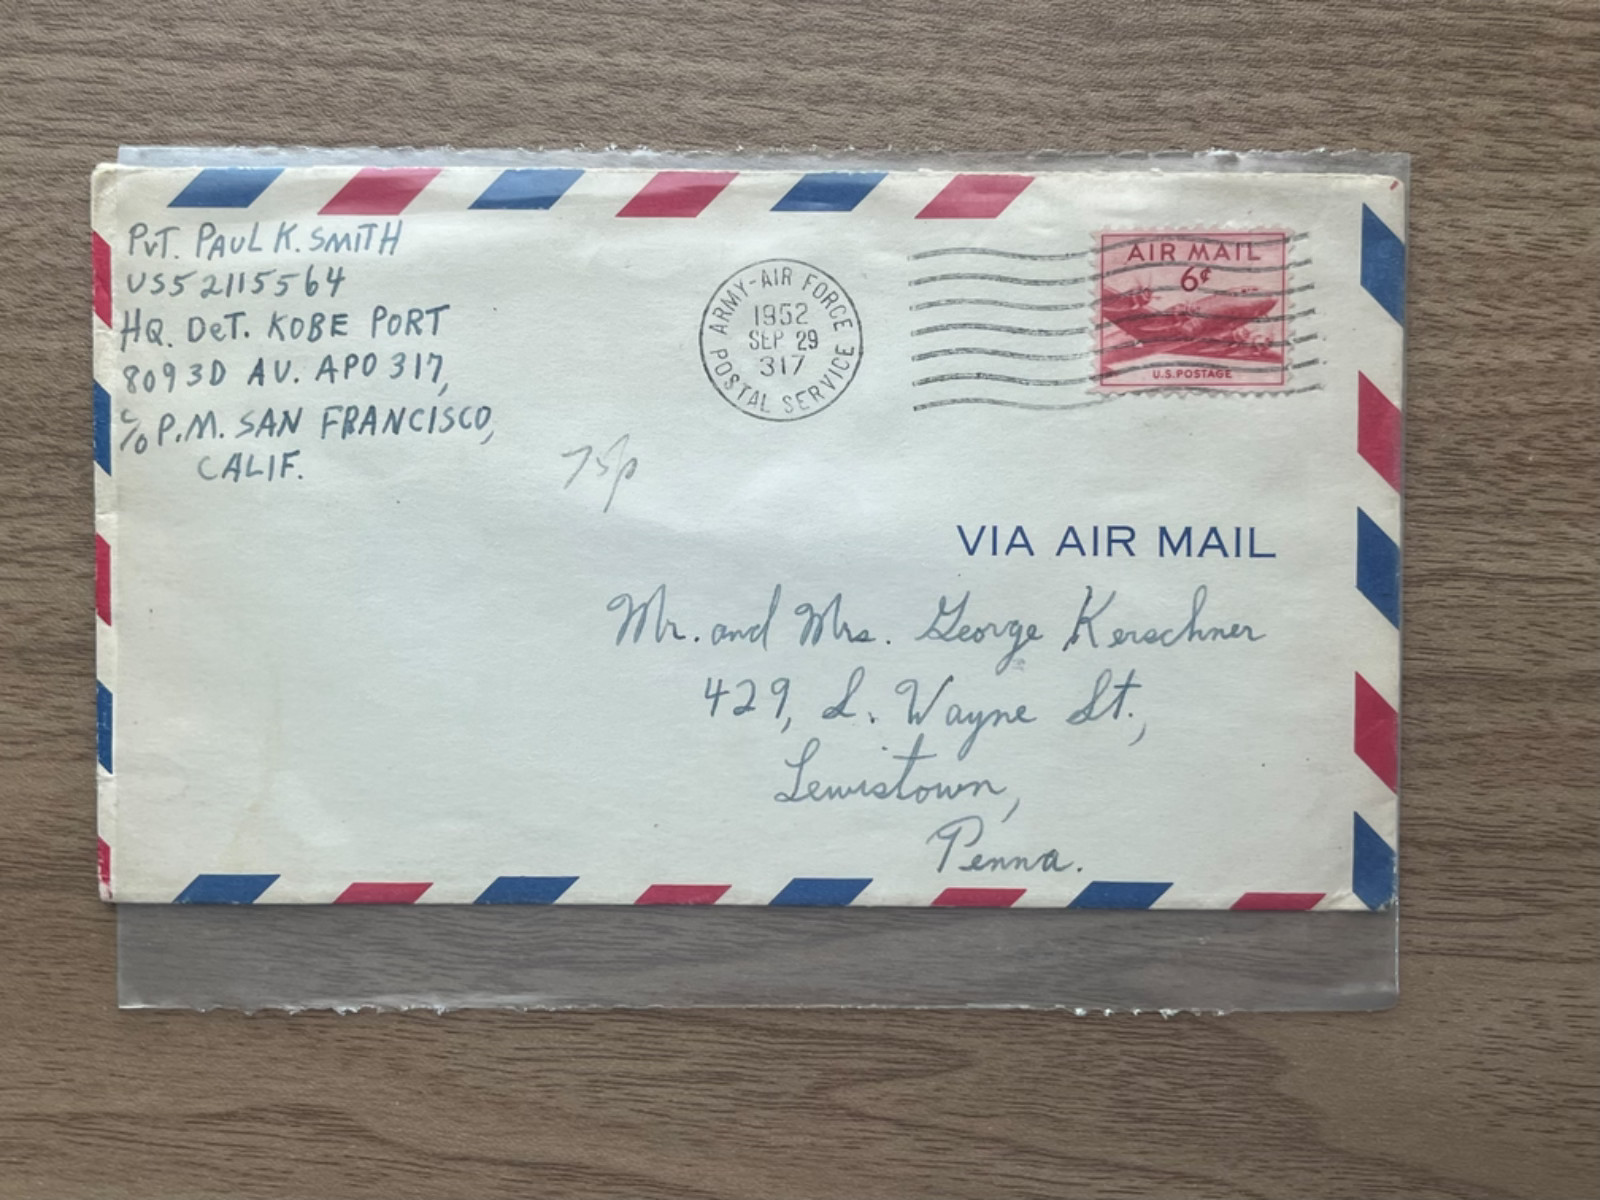 PVT. PAUL K. SMITH
US52115564
HQ. DeT. KOBE PORT
8093D AU. APO 317,
c/o P.M. SAN FRANCISCO,
CALIF.
ARMY-AIR FORCE
1952
SEP 29
317
POSTAL SERVICE
AIR MAIL
6¢
U.S. POSTAGE
75p
VIA AIR MAIL
Mr. and Mrs. George Kerschner
429, S. Wayne St.,
Lewistown,
Penna.